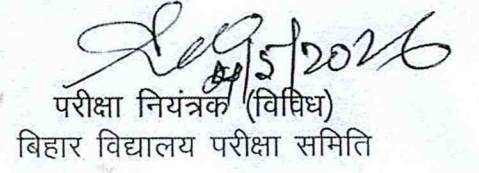 /5/2026
परीक्षा नियंत्रक (विविध)
बिहार विद्यालय परीक्षा समिति